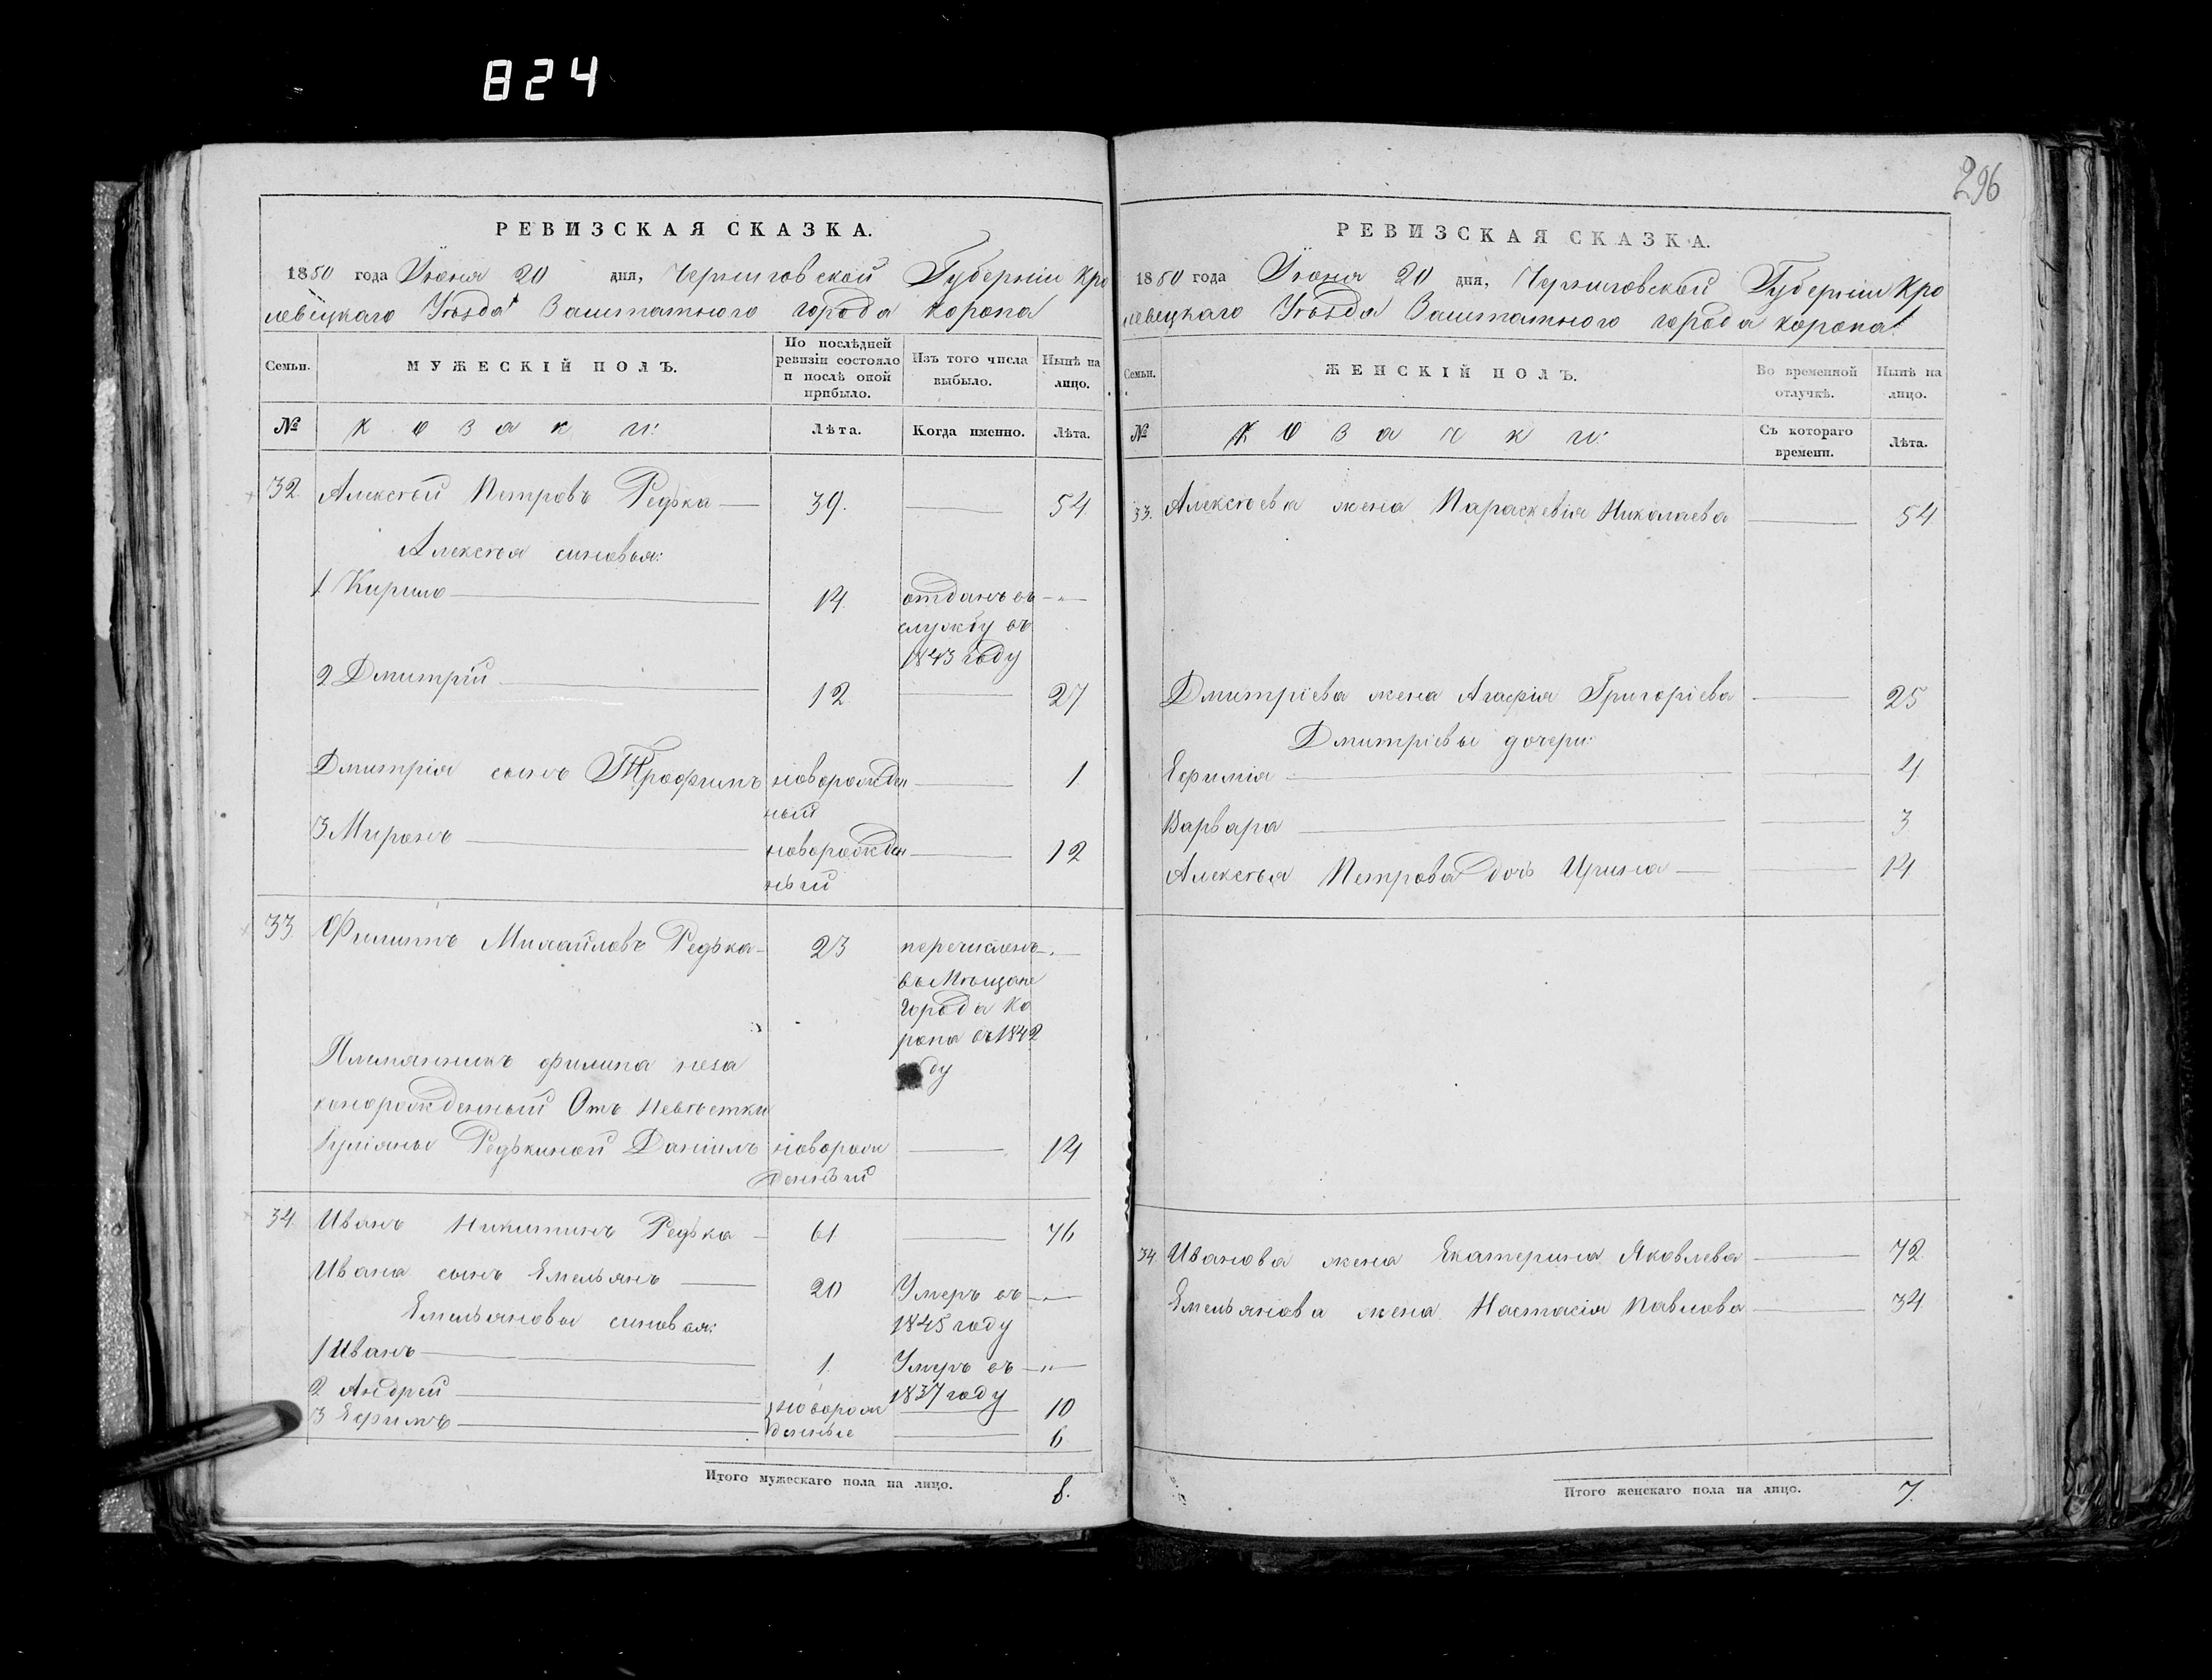 824
296
РЕВИЗСКАЯ СКАЗКА.
1850 года Июня 20 дня, Черниговской Губерніи Кро
левецкаго Уѣзда Заштатного города Коропа
Семьи.
МУЖЕСКІЙ ПОЛЪ.
По послѣдней ревизіи состояло и послѣ оной прибыло.
Изъ того числа выбыло.
Нынѣ на лицо.
№
Козаки:
Лѣта.
Когда именно.
Лѣта.
32 Алексѣй Петровъ Редька — 39. — 54
Алексѣя синовья:
1 Кирило — 14 отданъ въ —„—
службу въ
1843 году
2 Дмитрій — 12 — 27
Дмитрія сынъ Трофимъ новорожден — 1
ный
3 Миронъ — новорожден — 12
ный
33 Филипъ Михайловъ Редька — 23 перечисленъ —„—
въ Мѣщане
города Ко
ропа въ 1842
ду
Племянникъ филипа неза
конорожденный Отъ Невѣстки
Редькиной Даніилъ новорож — 14
денный
34 Иванъ Никитинъ Редька — 61 — 76
Ивана сынъ Емельянъ — 20 Умеръ въ —„—
Емельяновы синовья: 1845 году
1 Иванъ — 1. Умеръ въ —„—
2 Андрей — новорож 1837 году — 10
3 Ефимъ — денные — 6
Итого мужескаго пола на лицо. 8.
РЕВИЗСКАЯ СКАЗКА.
1850 года Июня 20 дня, Черниговской Губерніи Кро
левецкаго Уѣзда Заштатного города Коропа
Семьи.
ЖЕНСКІЙ ПОЛЪ.
Во временной отлучкѣ.
Нынѣ на лицо.
№
Козачки:
Съ котораго времени.
Лѣта.
33. Алексѣева жена Параскевія Николаева — 54
Дмитріева жена Агафія Григоріева — 25
Дмитріевы дочери:
Ефимія — 4
Варвара — 3
Алексѣя Петрова дочь Ирина — 14
34 Иванова жена Екатерина Яковлева — 72
Емельянова жена Настасія Павлова — 34
Итого женскаго пола на лицо. 7.